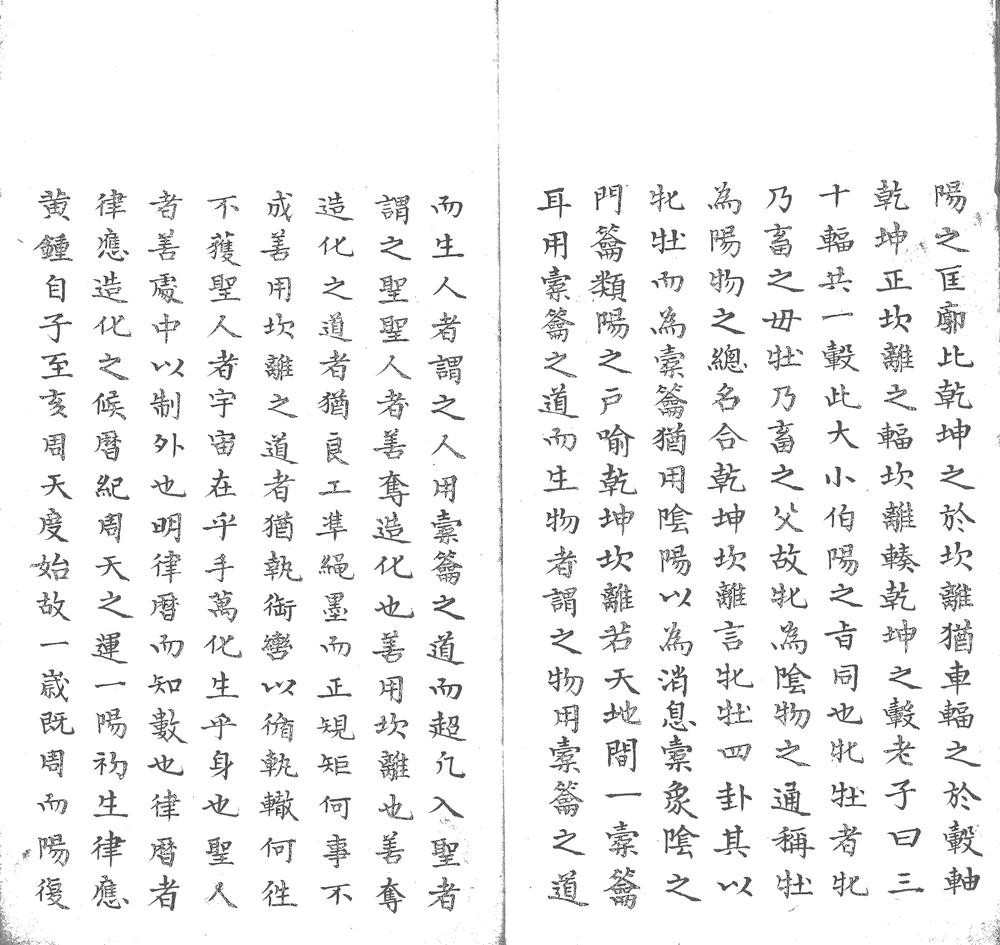 陽之匡廓比乾坤之於坎離猶車輻之於轂軸
乾坤正坎離之輻坎離輳乾坤之轂老子曰三
十輻共一轂此大小伯陽之旨同也牝牡者牝
乃畜之毋牡乃畜之父故牝為陰物之通稱牡
為陽物之總名合乾坤坎離言牝牡四卦其以
牝牡而為橐籥猶用陰陽以為消息橐象陰之
門籥類陽之戸喻乾坤坎離若天地間一橐籥
耳用橐籥之道而生物者謂之物用橐籥之道
而生人者謂之人用橐籥之道而超凢入聖者
謂之聖聖人者善奪造化也善用坎離也善奪
造化之道者猶良工凖繩墨而正規矩何事不
成善用坎離之道者猶執銜轡以循軌轍何徃
不獲聖人者宇宙在乎手萬化生乎身也聖人
者善處中以制外也明律暦而知數也律暦者
律應造化之候暦紀周天之運一陽初生律應
黄鍾自子至亥周天度始故一歳既周而陽復